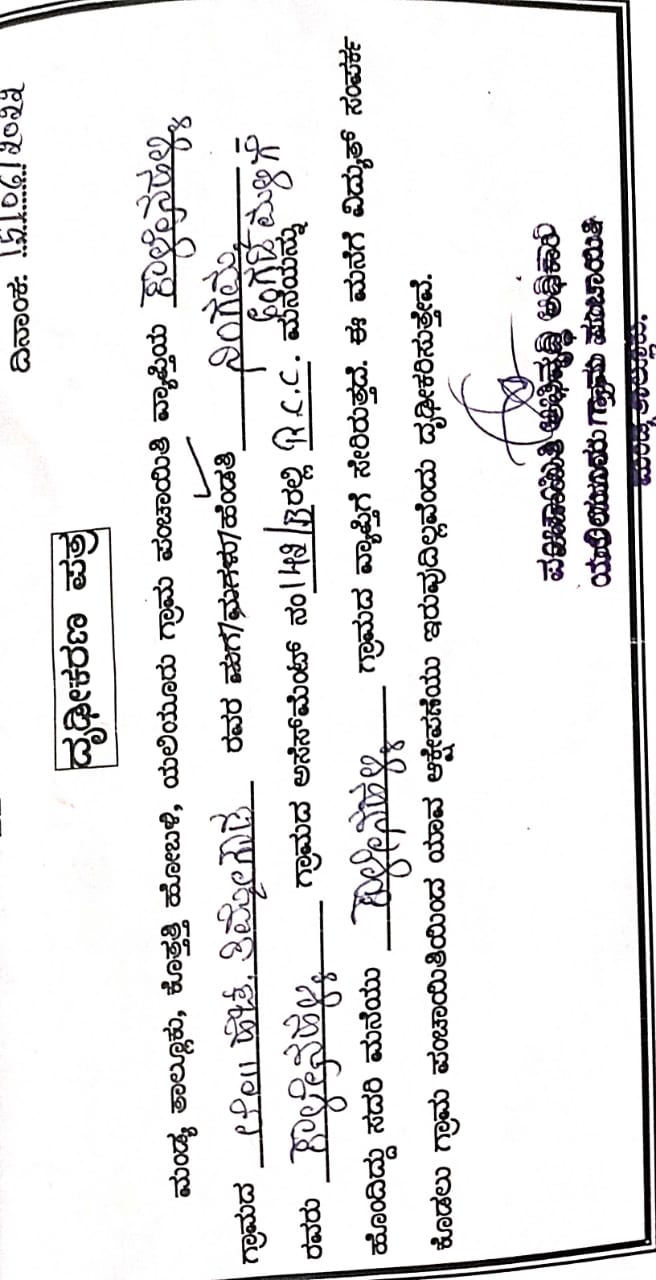 ದಿನಾಂಕ: 15/06/2022
ದೃಢೀಕರಣ ಪತ್ರ
ಮಂಡ್ಯ ತಾಲ್ಲೂಕು, ಕೊತ್ತತ್ತಿ ಹೋಬಳಿ, ಯಲಿಯೂರು ಗ್ರಾಮ ಪಂಚಾಯಿತಿ ವ್ಯಾಪ್ತಿಯ ಕಾಳೇನಹಳ್ಳಿ
ಗ್ರಾಮದ ತಿಮ್ಮೇಗೌಡ ರವರ ಮಗ/ಮಗಳು/ಹೆಂಡತಿ ನಿಂಗಮ್ಮ
ರವರು ಕಾಳೇನಹಳ್ಳಿ ಗ್ರಾಮದ ಅಸೆಸ್‌ಮೆಂಟ್ ನಂ 142/B ರಲ್ಲಿ R.C.C. ಮನೆಯನ್ನು
ಹೊಂದಿದ್ದು ಸದರಿ ಮನೆಯು ಕಾಳೇನಹಳ್ಳಿ ಗ್ರಾಮದ ವ್ಯಾಪ್ತಿಗೆ ಸೇರಿರುತ್ತದೆ. ಈ ಮನೆಗೆ ವಿದ್ಯುತ್ ಸಂಪರ್ಕ
ಕೊಡಲು ಗ್ರಾಮ ಪಂಚಾಯಿತಿಯಿಂದ ಯಾವ ಆಕ್ಷೇಪಣೆಯು ಇರುವುದಿಲ್ಲವೆಂದು ದೃಢೀಕರಿಸುತ್ತೇವೆ.
ಪಂಚಾಯಿತಿ ಅಭಿವೃದ್ಧಿ ಅಧಿಕಾರಿ
ಯಲಿಯೂರು ಗ್ರಾಮ ಪಂಚಾಯಿತಿ
ಮಂಡ್ಯ ತಾಲ್ಲೂಕು.